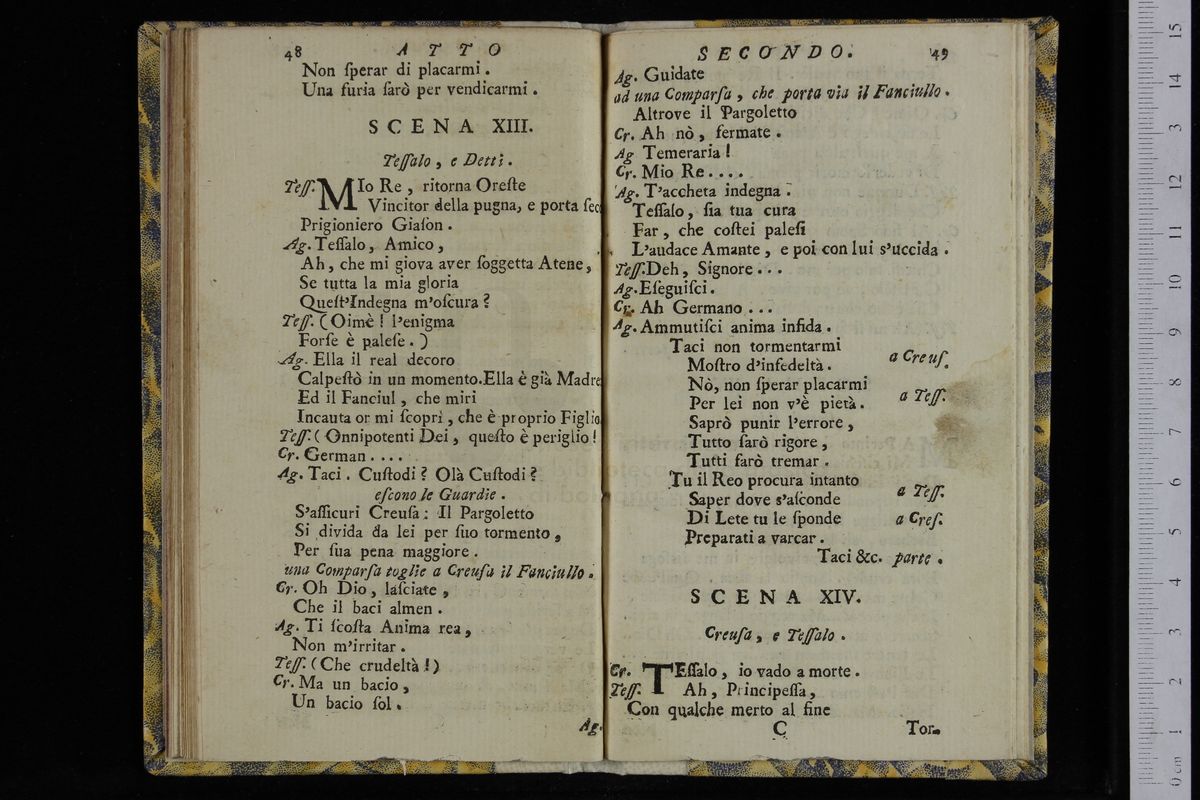 48 ATTO
Non ſperar di placarmi.
Una furia ſarò per vendicarmi.
SCENA XIII.
Teſſalo, e Detti.
Teſſ. MIo Re, ritorna Oreſte
Vincitor della pugna, e porta ſec
Prigioniero Giaſon.
Ag. Teſſalo, Amico,
Ah, che mi giova aver ſoggetta Atene,
Se tutta la mia gloria
Queſt'Indegna m'oſcura?
Teſſ. (Oimè! l'enigma
Forſe è paleſe.)
Ag. Ella il real decoro
Calpeſtò in un momento. Ella è già Madre
Ed il Fanciul, che miri
Incauta or mi ſcoprì, che è proprio Figlio
Teſſ. (Onnipotenti Dei, queſto è periglio!
Cr. German....
Ag. Taci. Cuſtodi? Olà Cuſtodi?
eſcono le Guardie.
S'aſſicuri Creuſa: Il Pargoletto
Si divida da lei per ſuo tormento,
Per ſua pena maggiore.
una Comparſa toglie a Creuſa il Fanciullo.
Cr. Oh Dio, laſciate,
Che il baci almen.
Ag. Ti ſcoſta Anima rea,
Non m'irritar.
Teſſ. (Che crudeltà!)
Cr. Ma un bacio,
Un bacio ſol.
Ag.
SECONDO. 49
Ag. Guidate
ad una Comparſa, che porta via il Fanciullo.
Altrove il Pargoletto
Cr. Ah nò, fermate.
Ag Temeraria!
Cr. Mio Re....
Ag. T'accheta indegna.
Teſſalo, ſia tua cura
Far, che coſtei paleſi
L'audace Amante, e poi con lui s'uccida.
Teſſ. Deh, Signore...
Ag. Eſeguiſci.
Cr. Ah Germano...
Ag. Ammutiſci anima infida.
Taci non tormentarmi
Moſtro d'infedeltà. a Creuſ.
Nò, non ſperar placarmi
Per lei non v'è pietà. a Teſſ.
Saprò punir l'errore,
Tutto ſarò rigore,
Tutti farò tremar.
Tu il Reo procura intanto
Saper dove s'aſconde a Teſſ.
Di Lete tu le ſponde a Creſ.
Preparati a varcar.
Taci &c. parte.
SCENA XIV.
Creuſa, e Teſſalo.
Cr. TEſſalo, io vado a morte.
Teſſ. Ah, Principeſſa,
Con qualche merto al fine
C Tor-